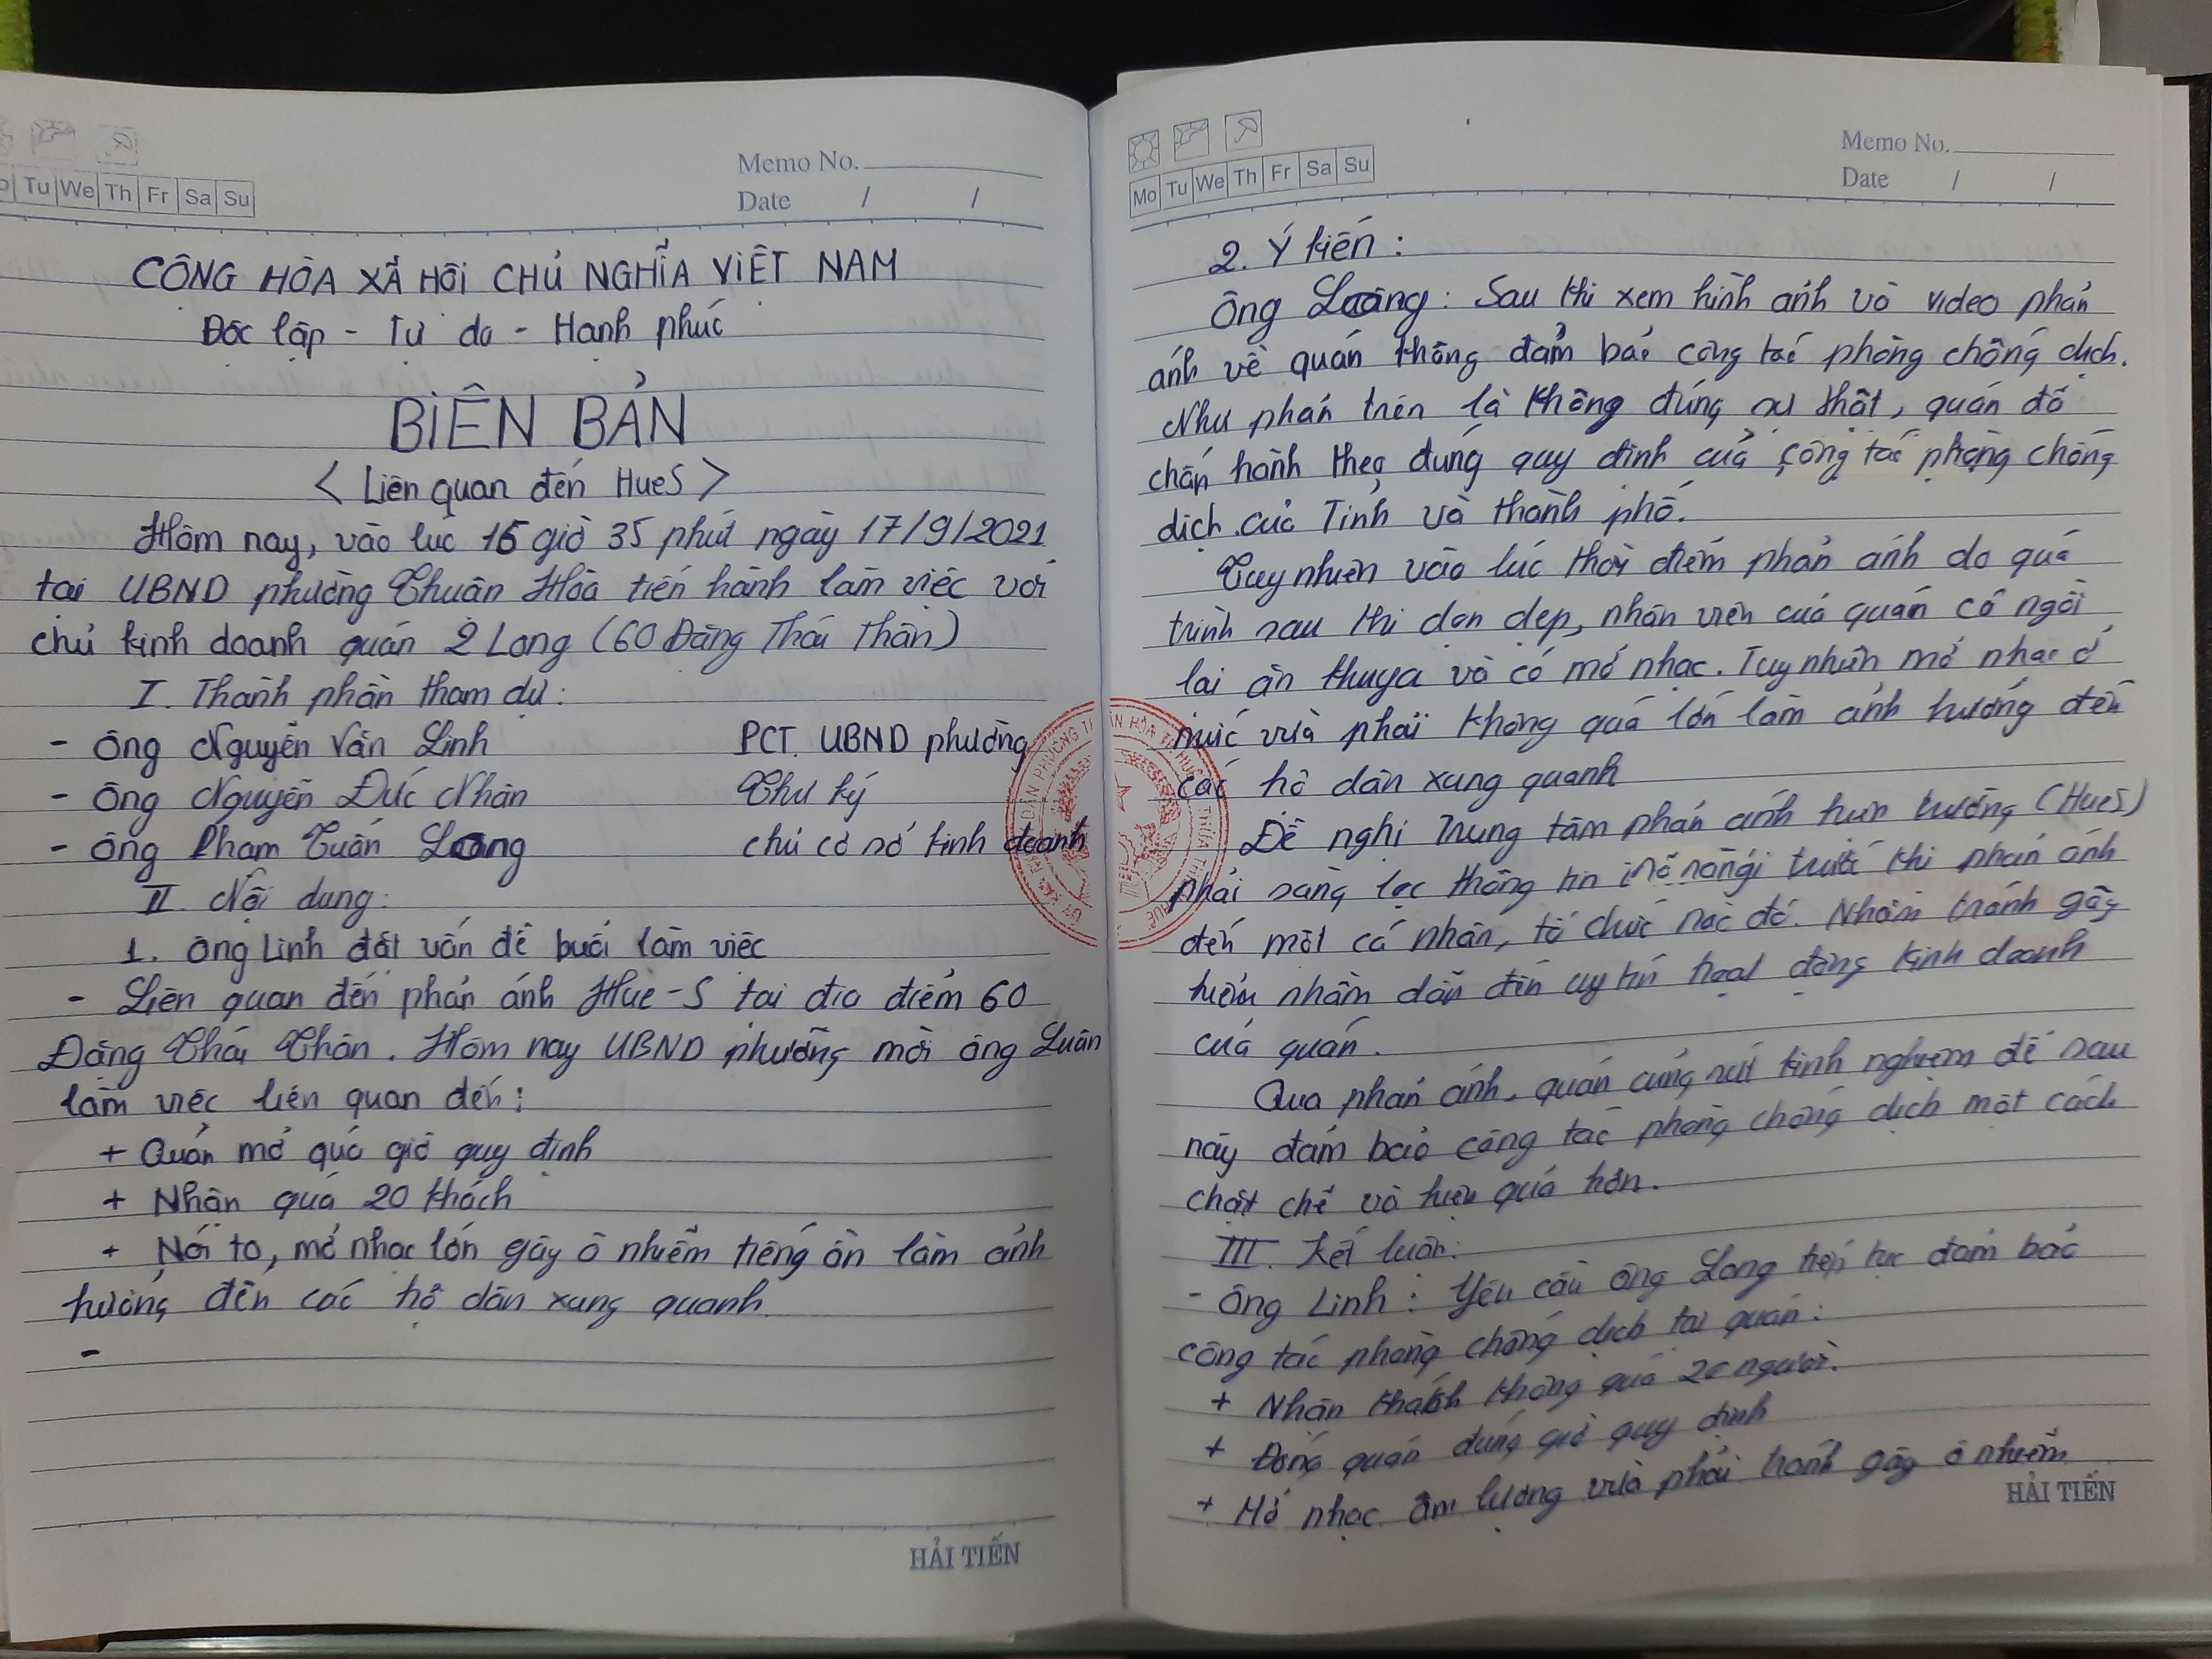 Mo Tu We Th Fr Sa Su
Memo No.
Date / /
CỘNG HÒA XÃ HỘI CHỦ NGHĨA VIỆT NAM
Độc lập - Tự do - Hạnh phúc
BIÊN BẢN
< Liên quan đến HueS >
Hôm nay, vào lúc 15 giờ 35 phút ngày 17/9/2021
tại UBND phường Thuận Hòa tiến hành làm việc với
chủ kinh doanh quán 2 Long (60 Đặng Thái Thân)
I. Thành phần tham dự:
- Ông Nguyễn Văn Linh PCT. UBND phường
- Ông Nguyễn Đức Nhân Thư ký
- Ông Phạm Tuấn Long chủ cơ sở kinh doanh
II. Nội dung:
1. Ông Linh đặt vấn đề buổi làm việc
- Liên quan đến phản ánh Hue-S tại địa điểm 60
Đặng Thái Thân. Hôm nay UBND phường mời ông Luân
làm việc liên quan đến:
+ Quán mở quá giờ quy định
+ Nhận quá 20 khách
+ Nói to, mở nhạc lớn gây ô nhiễm tiếng ồn làm ảnh
hưởng đến các hộ dân xung quanh
-
HẢI TIẾN
Mo Tu We Th Fr Sa Su
Memo No.
Date / /
2. Ý kiến:
Ông Long: Sau khi xem hình ảnh và video phản
ánh về quán không đảm bảo công tác phòng chống dịch.
Như phản trên là không đúng sự thật, quán đã
chấn hành theo đúng quy định của công tác phòng chống
dịch của Tỉnh và thành phố.
Tuy nhiên vào lúc thời điểm phản ánh do quá
trình sau khi dọn dẹp, nhân viên của quán có ngồi
lại ăn khuya và có mở nhạc. Tuy nhiên mở nhạc ở
mức vừa phải không quá lớn làm ảnh hưởng đến
các hộ dân xung quanh
Đề nghị Trung tâm phản ánh hiện trường (HueS)
phải sàng lọc thông tin rõ ràng trước khi phản ánh
đến một cá nhân, tổ chức nào đó. Nhằm tránh gây
hiểu nhầm dẫn đến uy tín hoạt động kinh doanh
của quán.
Qua phản ánh, quán cũng rút kinh nghiệm để sau
này đảm bảo công tác phòng chống dịch một cách
chặt chẽ và hiệu quả hơn.
III. Kết luận:
- Ông Linh: Yêu cầu ông Long tiếp tục đảm bảo
công tác phòng chống dịch tại quán:
+ Nhận khách không quá 20 người.
+ Đóng quán đúng giờ quy định
+ Mở nhạc âm lượng vừa phải tránh gây ô nhiễm
HẢI TIẾN